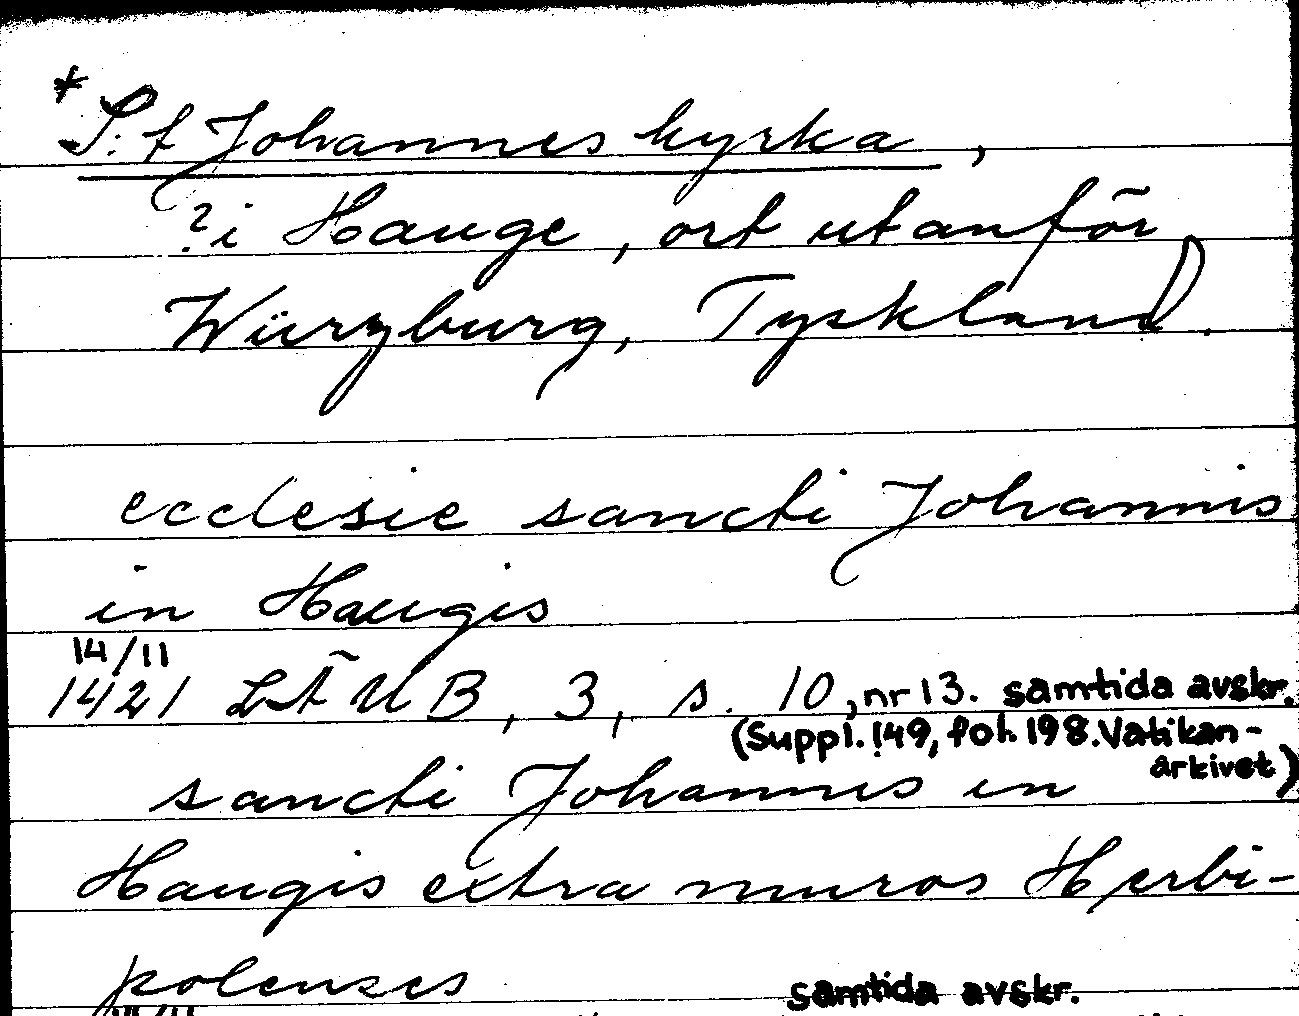 * S:t Johannes kyrka,
? i Hauge, ort utanför
Würzburg, Tyskland.
ecclesie sancti Johannis
in Haugis
14/11
1421 SÄUB, 3, s. 10, nr 13. samtida avskr.
(Suppl. 149, fol. 198. Vatikan-
arkivet)
sancti Johannis in
Haugis extra muros Herbi-
polenses
samtida avskr.